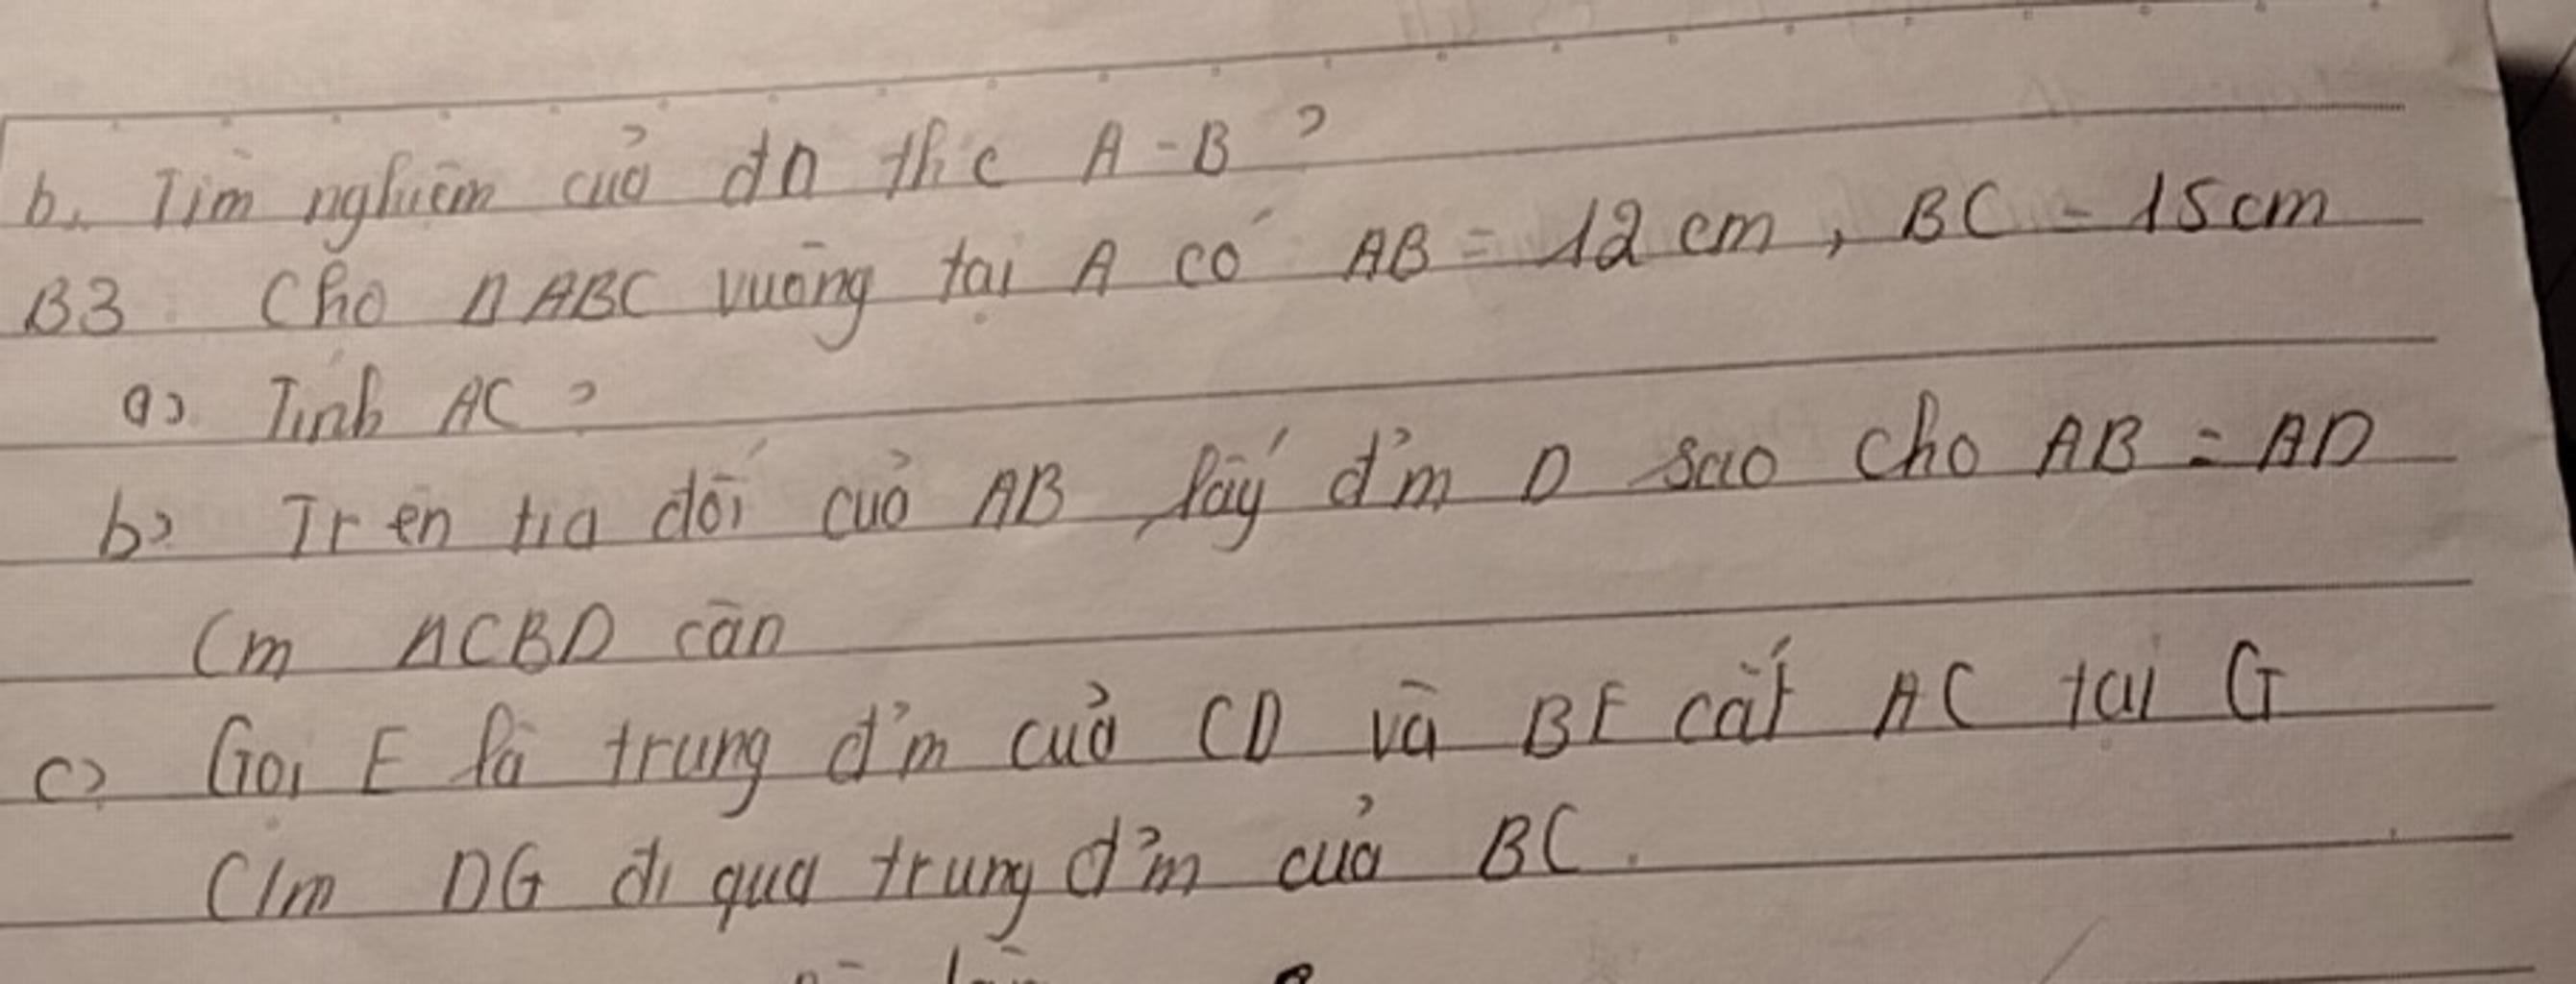 b. Tìm nghiêm củả đa thc A-B ?
B3 Cho ΔABC vuông tại A có AB = 12 cm, BC = 15cm
a) Tính AC ?
b) Trên tia đối củả AB lấy đ'm D sao cho AB = AD
Cm ΔCBD cân
c) Gọi E là trung đ'm củả CD và BE cắt AC tại G
C/m DG đi qua trung đ'm của BC.